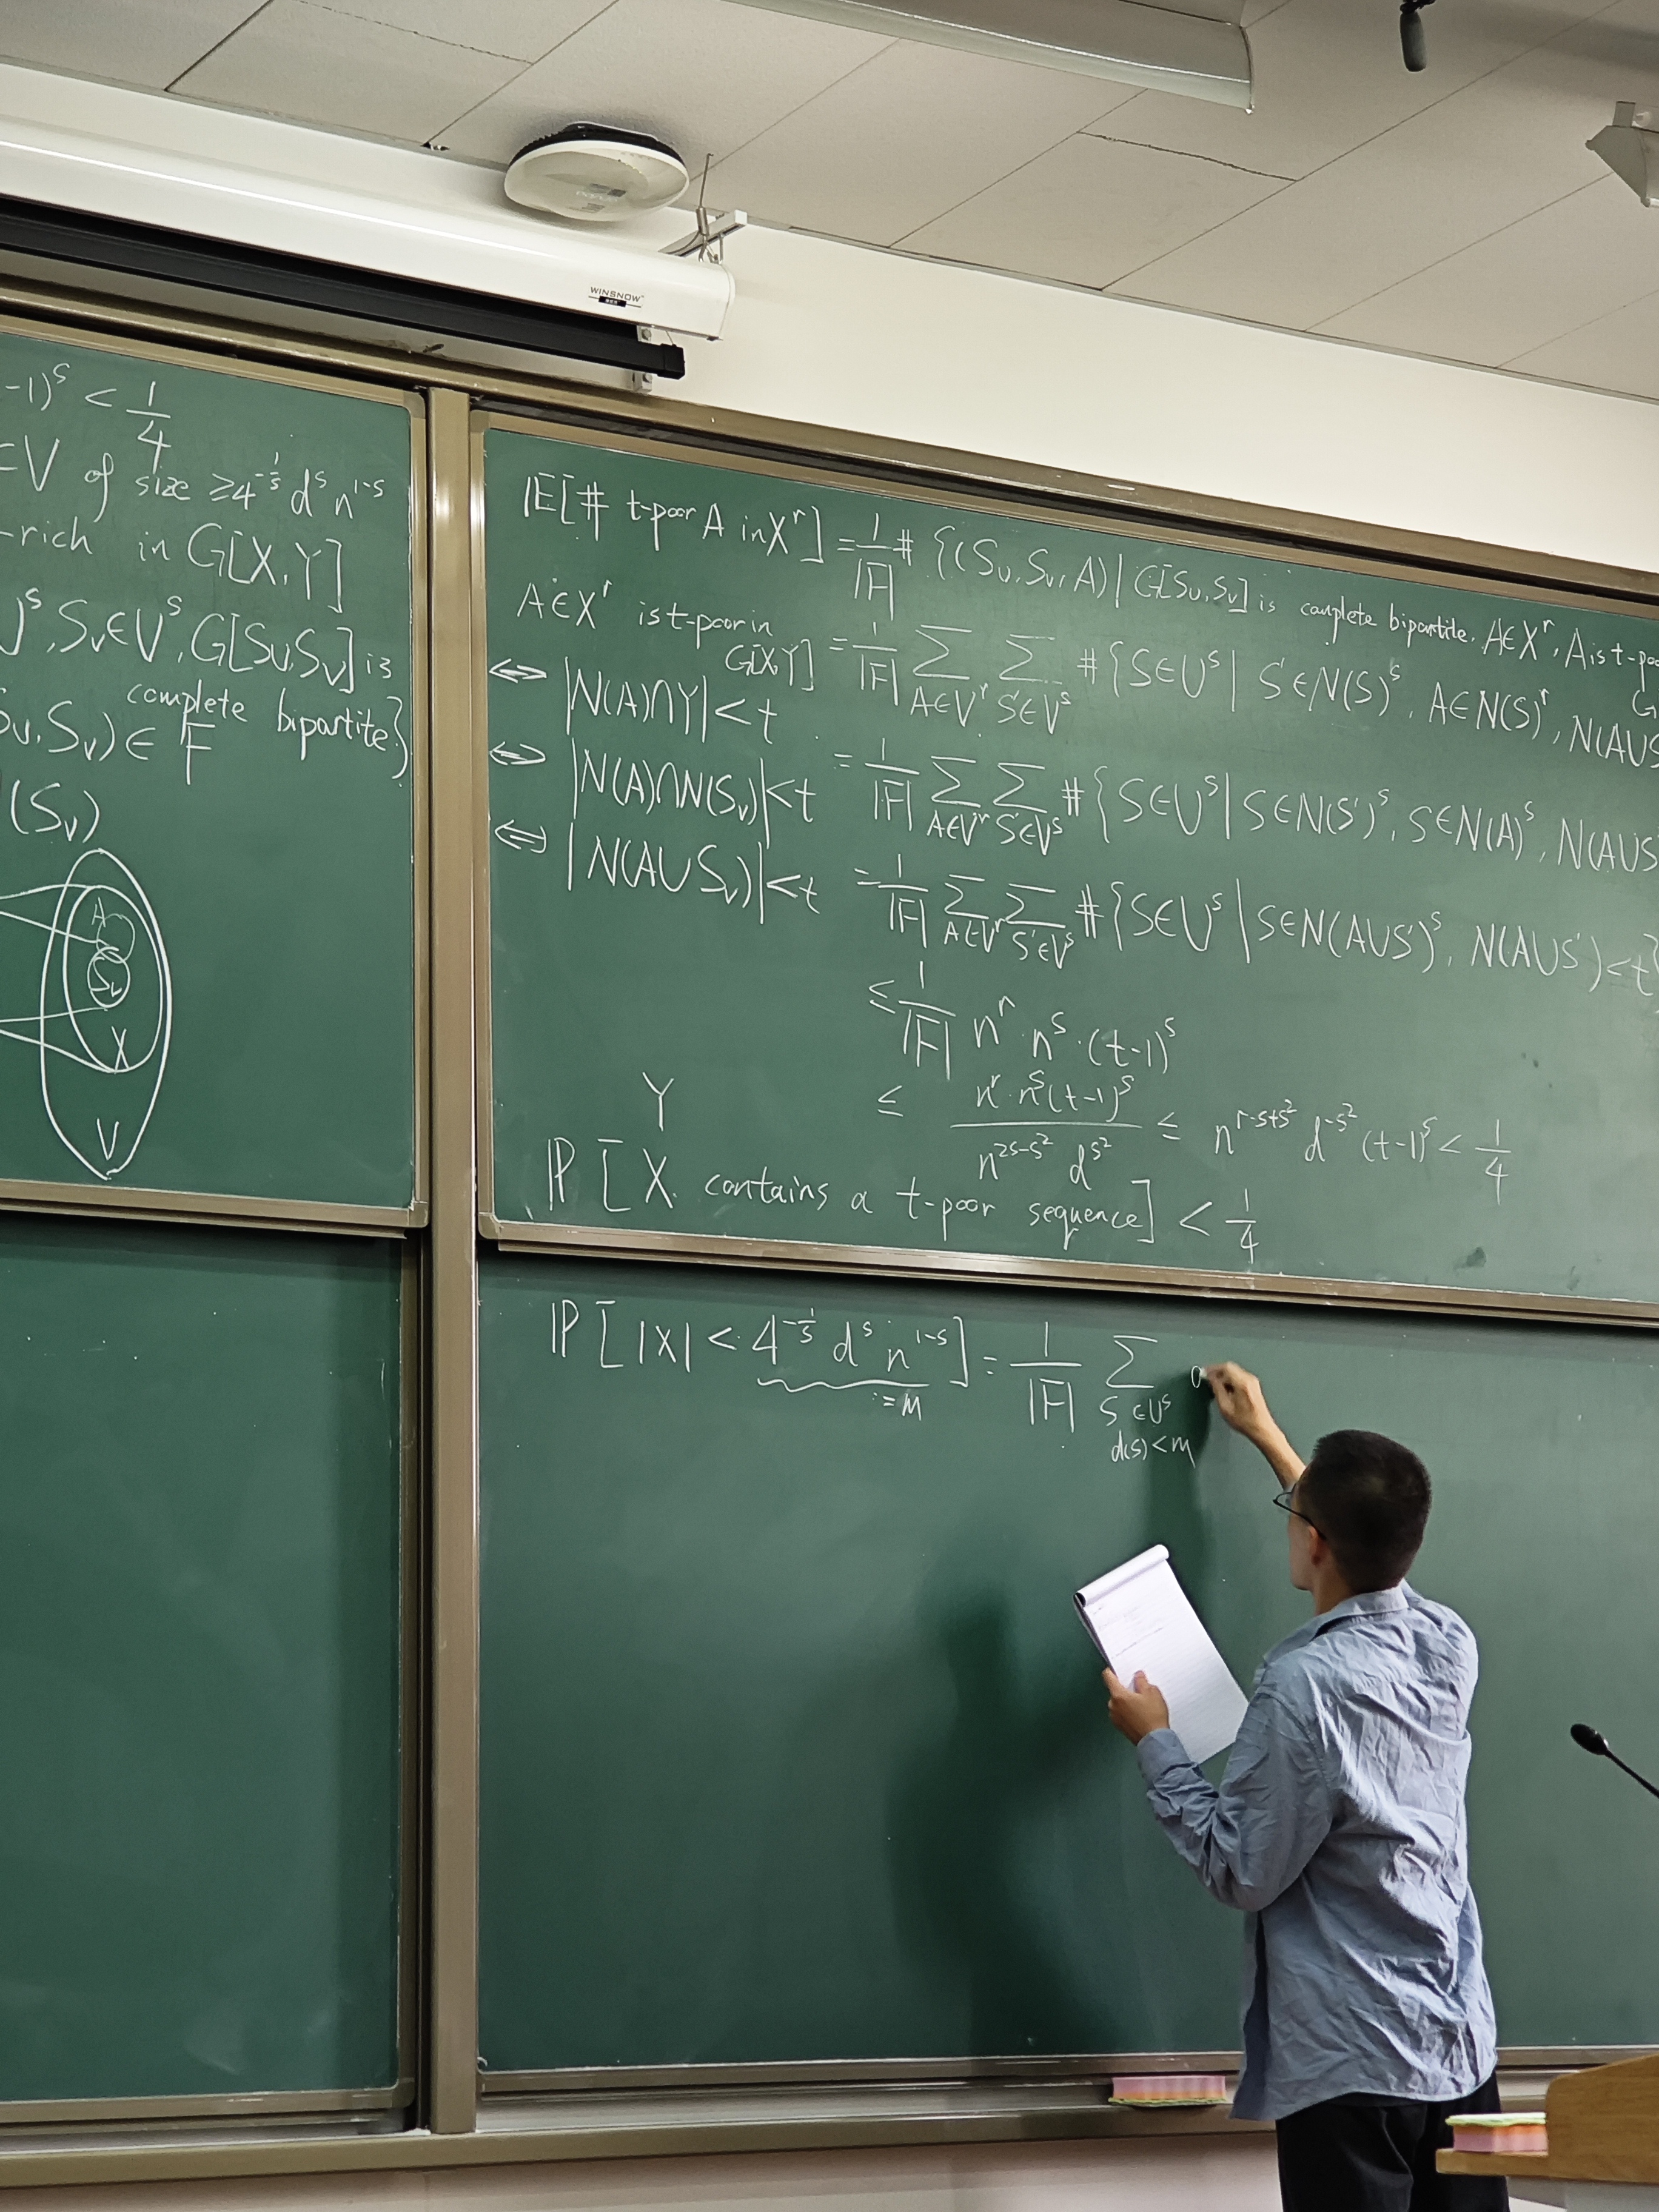 WINSNOW
-1)^s < 1/4
∈V of size ≥ 4^{-1/s} d^s n^{1-s}
-rich in G[X,Y]
U^s, S_V∈V^s, G[S_U,S_V] is
complete bipartite}
S_U,S_V)∈ F
(S_V)
A
S_V
X
V
𝔼[# t-poor A in X^r] = 1/|F| # {(S_U,S_V,A) | G[S_U,S_V] is complete bipartite, A∈X^r, A is t-poo
A∈X^r is t-poor in G[X,Y] = 1/|F| Σ_{A∈V^r} Σ_{S'∈V^s} #{S∈U^s | S'∈N(S)^s, A∈N(S)^r, N(A∪S
⇔ |N(A)∩Y|<t
= 1/|F| Σ_{A∈V^r} Σ_{S'∈V^s} #{S∈U^s | S∈N(S')^s, S∈N(A)^s, N(A∪S
⇔ |N(A)∩N(S_V)|<t
= 1/|F| Σ_{A∈V^r} Σ_{S'∈V^s} #{S∈U^s | S∈N(A∪S')^s, N(A∪S')<t}
⇔ |N(A∪S_V)|<t
≤ 1/|F| n^r · n^s · (t-1)^s
≤ n^r · n^s (t-1)^s / n^{2s-s^2} d^{s^2} ≤ n^{r-s+s^2} d^{-s^2} (t-1)^s < 1/4
Y
ℙ[X contains a t-poor sequence] < 1/4
ℙ[|X| < 4^{-1/s} d^s n^{1-s}] = 1/|F| Σ_{S∈U^s d(S)<m}
:=m